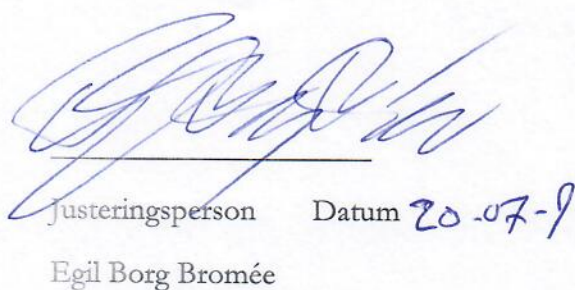 Justeringsperson Datum 20-07-9
Egil Borg Bromée